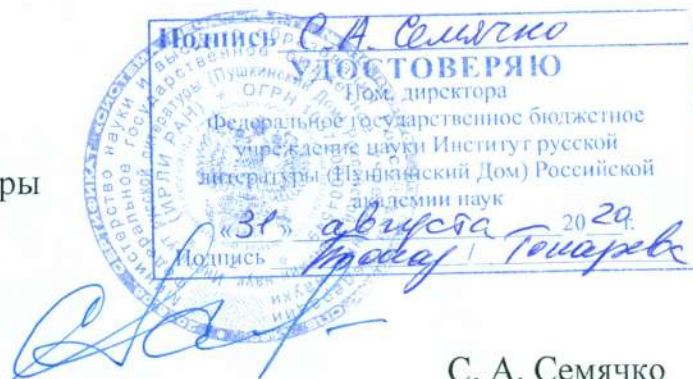 Подпись С. А. Семячко
УДОСТОВЕРЯЮ
Пом. директора
Федеральное государственное бюджетное
учреждение науки Институт русской
литературы (Пушкинский Дом) Российской
академии наук
«31» августа 2020 г.
Подпись
ры
С. А. Семячко